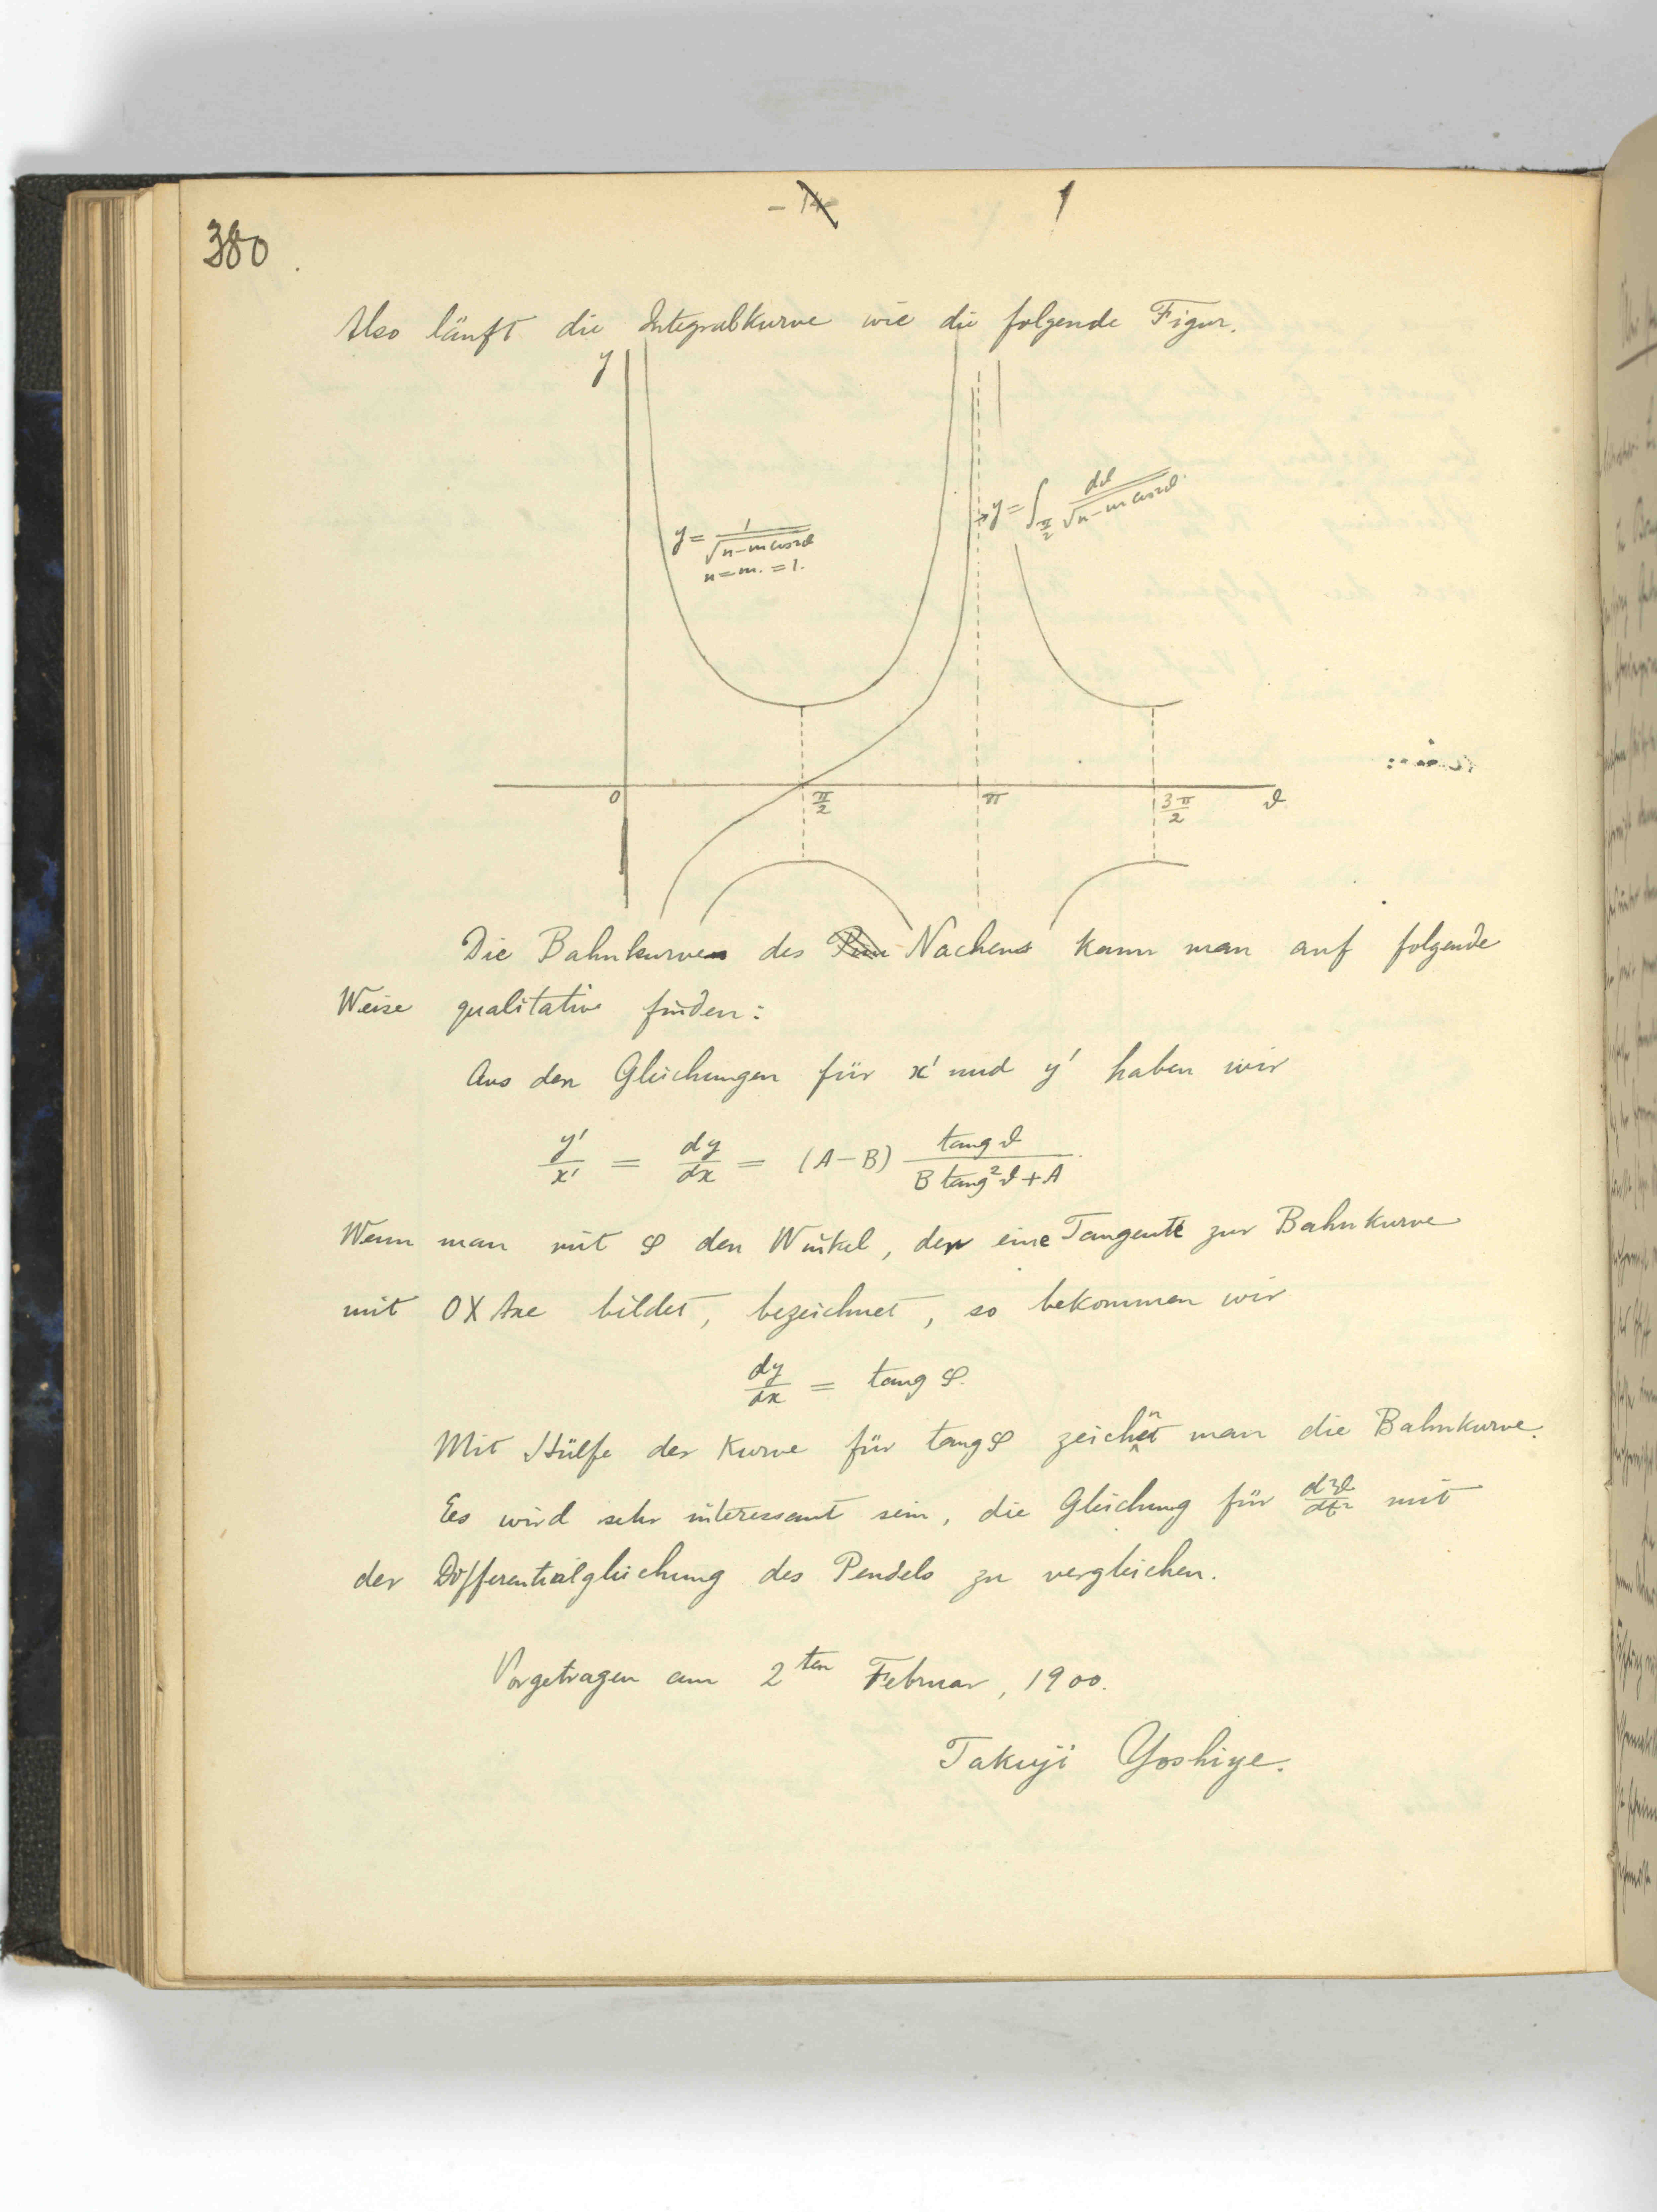 380
Also läuft die Integralkurve wie die folgende Figur.
y
y = 1/√(n−m cos2ϑ)
n = m. = 1.
y = ∫_{π/2} dϑ/√(n−m cos2ϑ).
0 π/2 π 3π/2 ϑ
Die Bahnkurve des Nachens kann man auf folgende
Weise qualitative finden:
Aus den Gleichungen für x' und y' haben wir
y'/x' = dy/dx = (A−B) tang ϑ/(B tang²ϑ + A).
Wenn man mit φ den Winkel, den eine Tangente zur Bahnkurve
mit OX Axe bildet, bezeichnet, so bekommen wir
dy/dx = tang φ.
Mit Hülfe der Kurve für tang φ zeichnet man die Bahnkurve.
Es wird sehr interessant sein, die Gleichung für d²ϑ/dt² mit
der Differentialgleichung des Pendels zu vergleichen.
Vorgetragen am 2ten Februar, 1900.
Takuji Yoshiye.